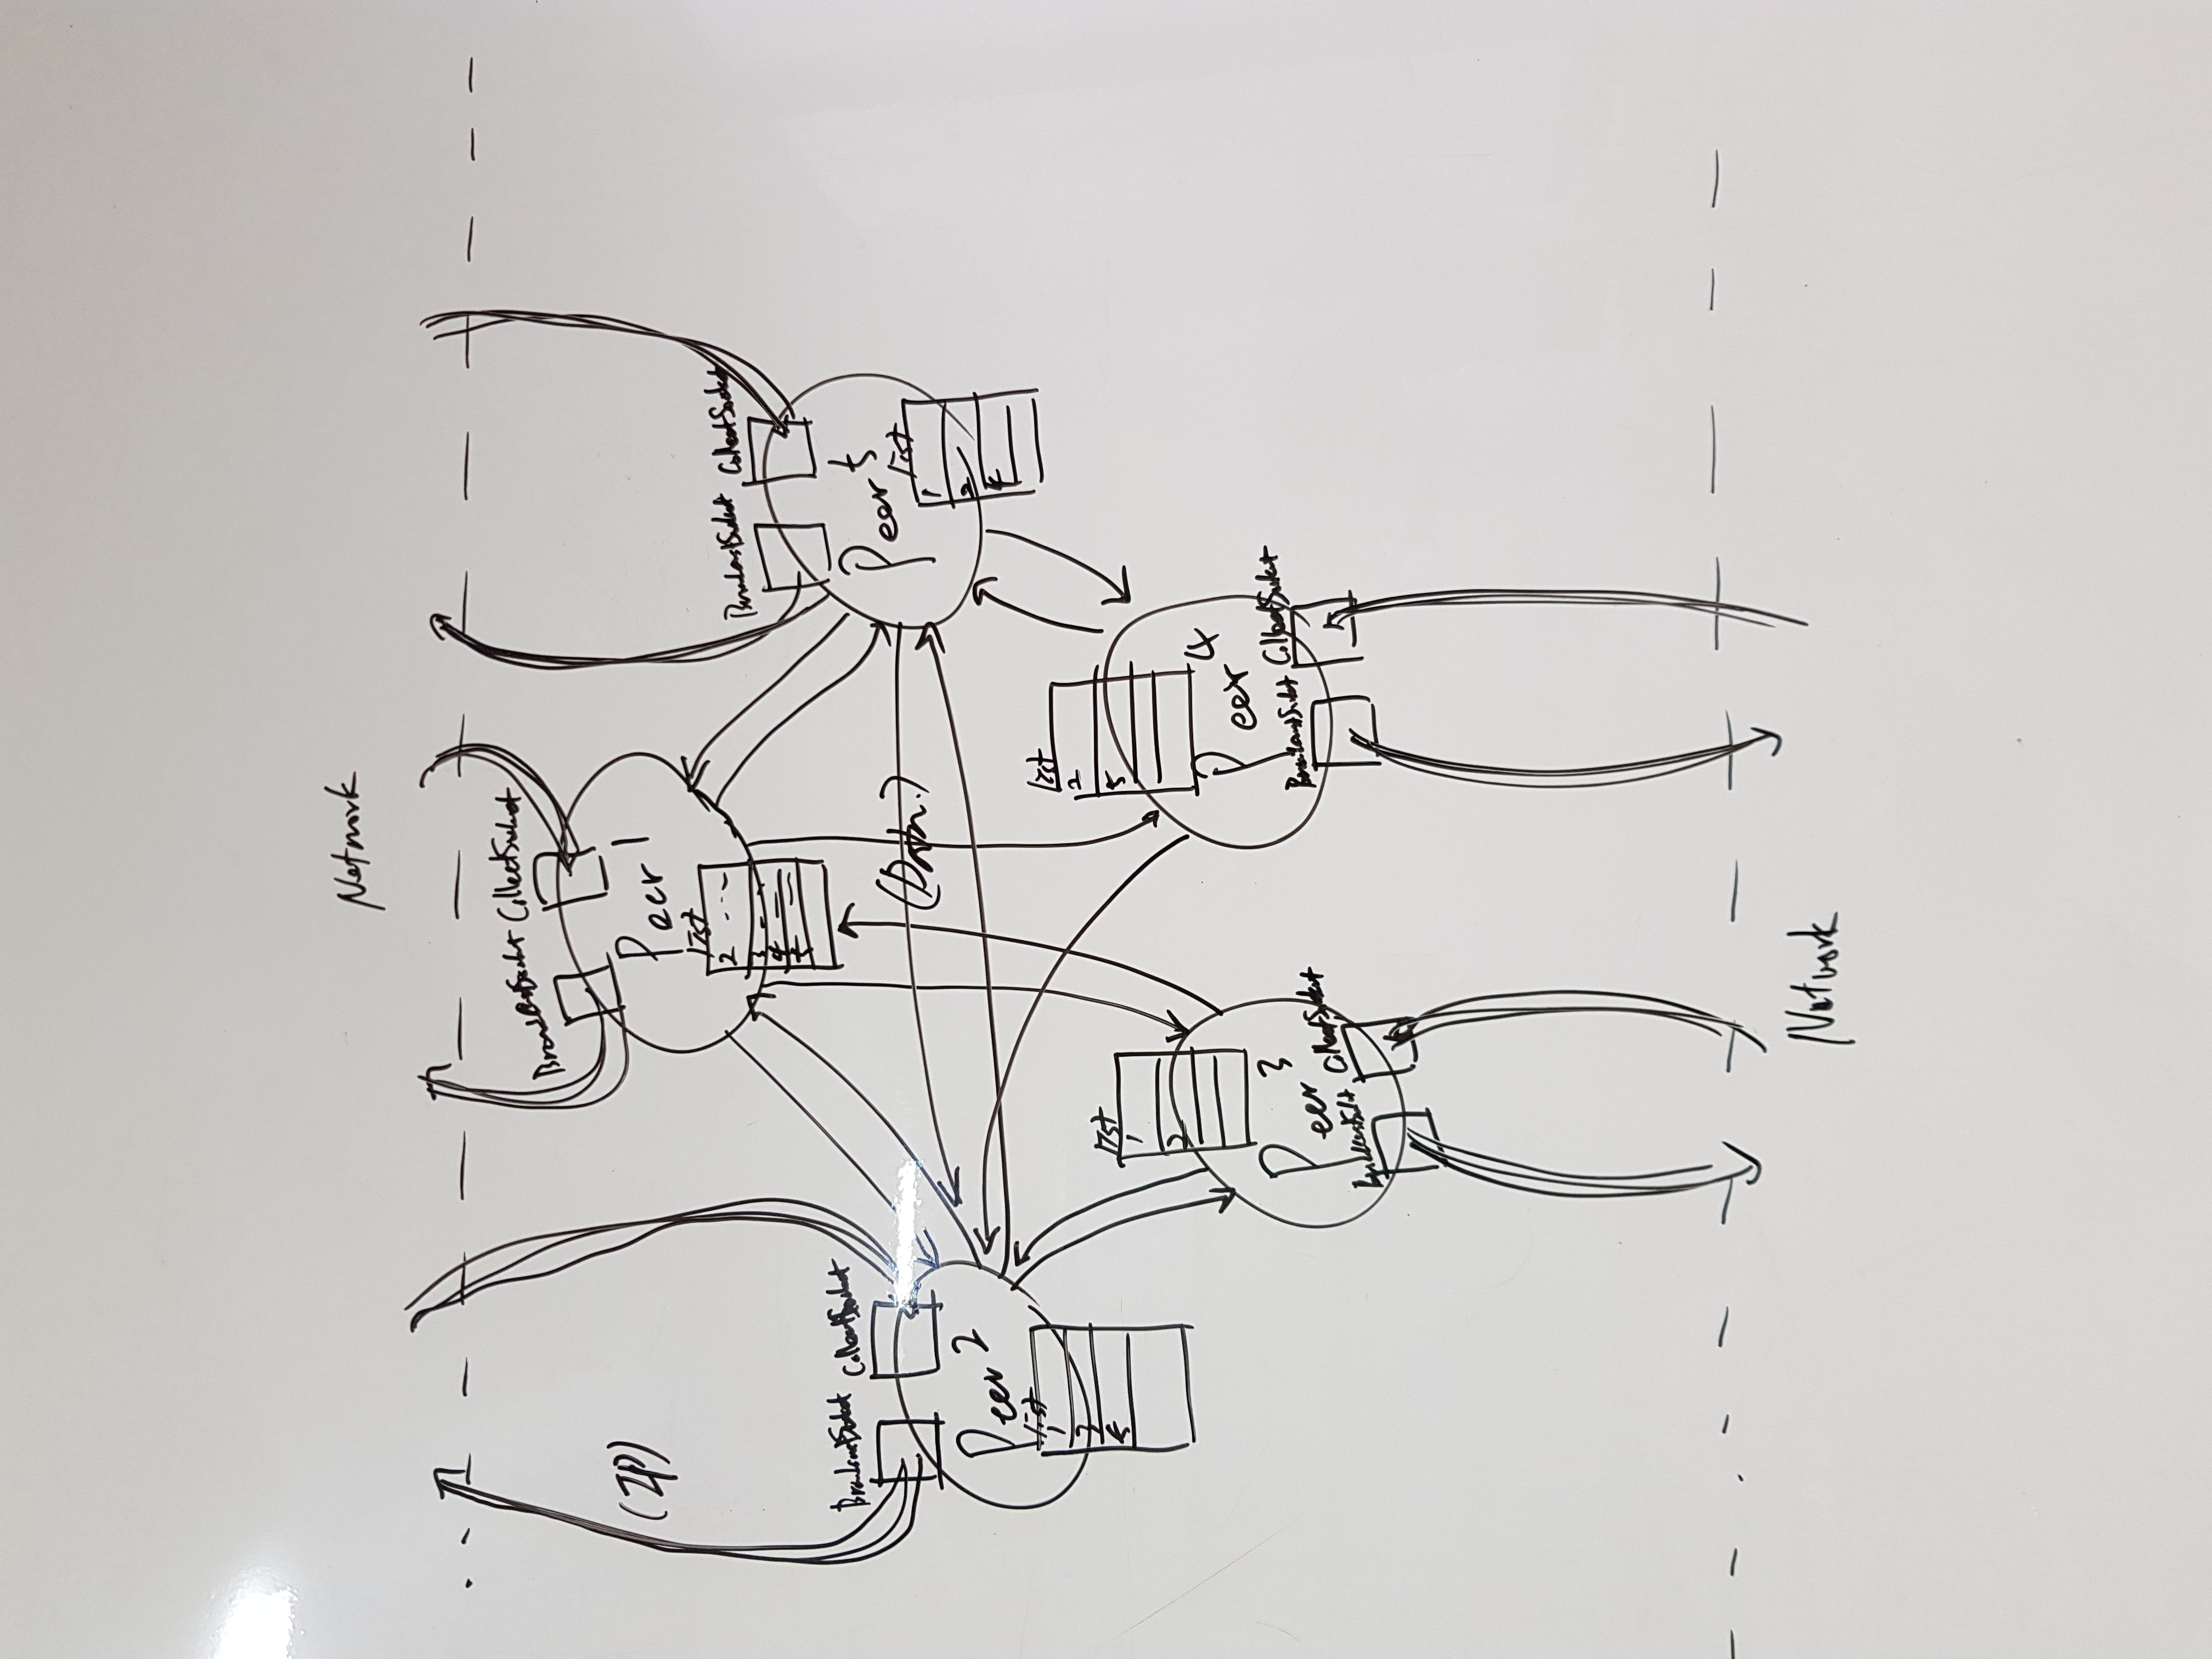 Network
BroadcastSocket CollectSocket
(IP)
Peer 1
list
2 ---
3 - -
4 —
5 —
BroadcastSocket CollectSocket
Peer 5
list
1
2
4
BroadcastSocket CollectSocket
Peer 2
list
1
3
5
(Data)
list
1
2
Peer 3
BroadcastSocket CollectSocket
list
2
5
Peer 4
BroadcastSocket CollectSocket
Network